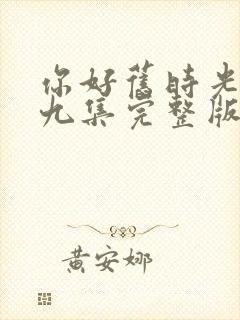 你好舊時光
九集完整版
黃安娜